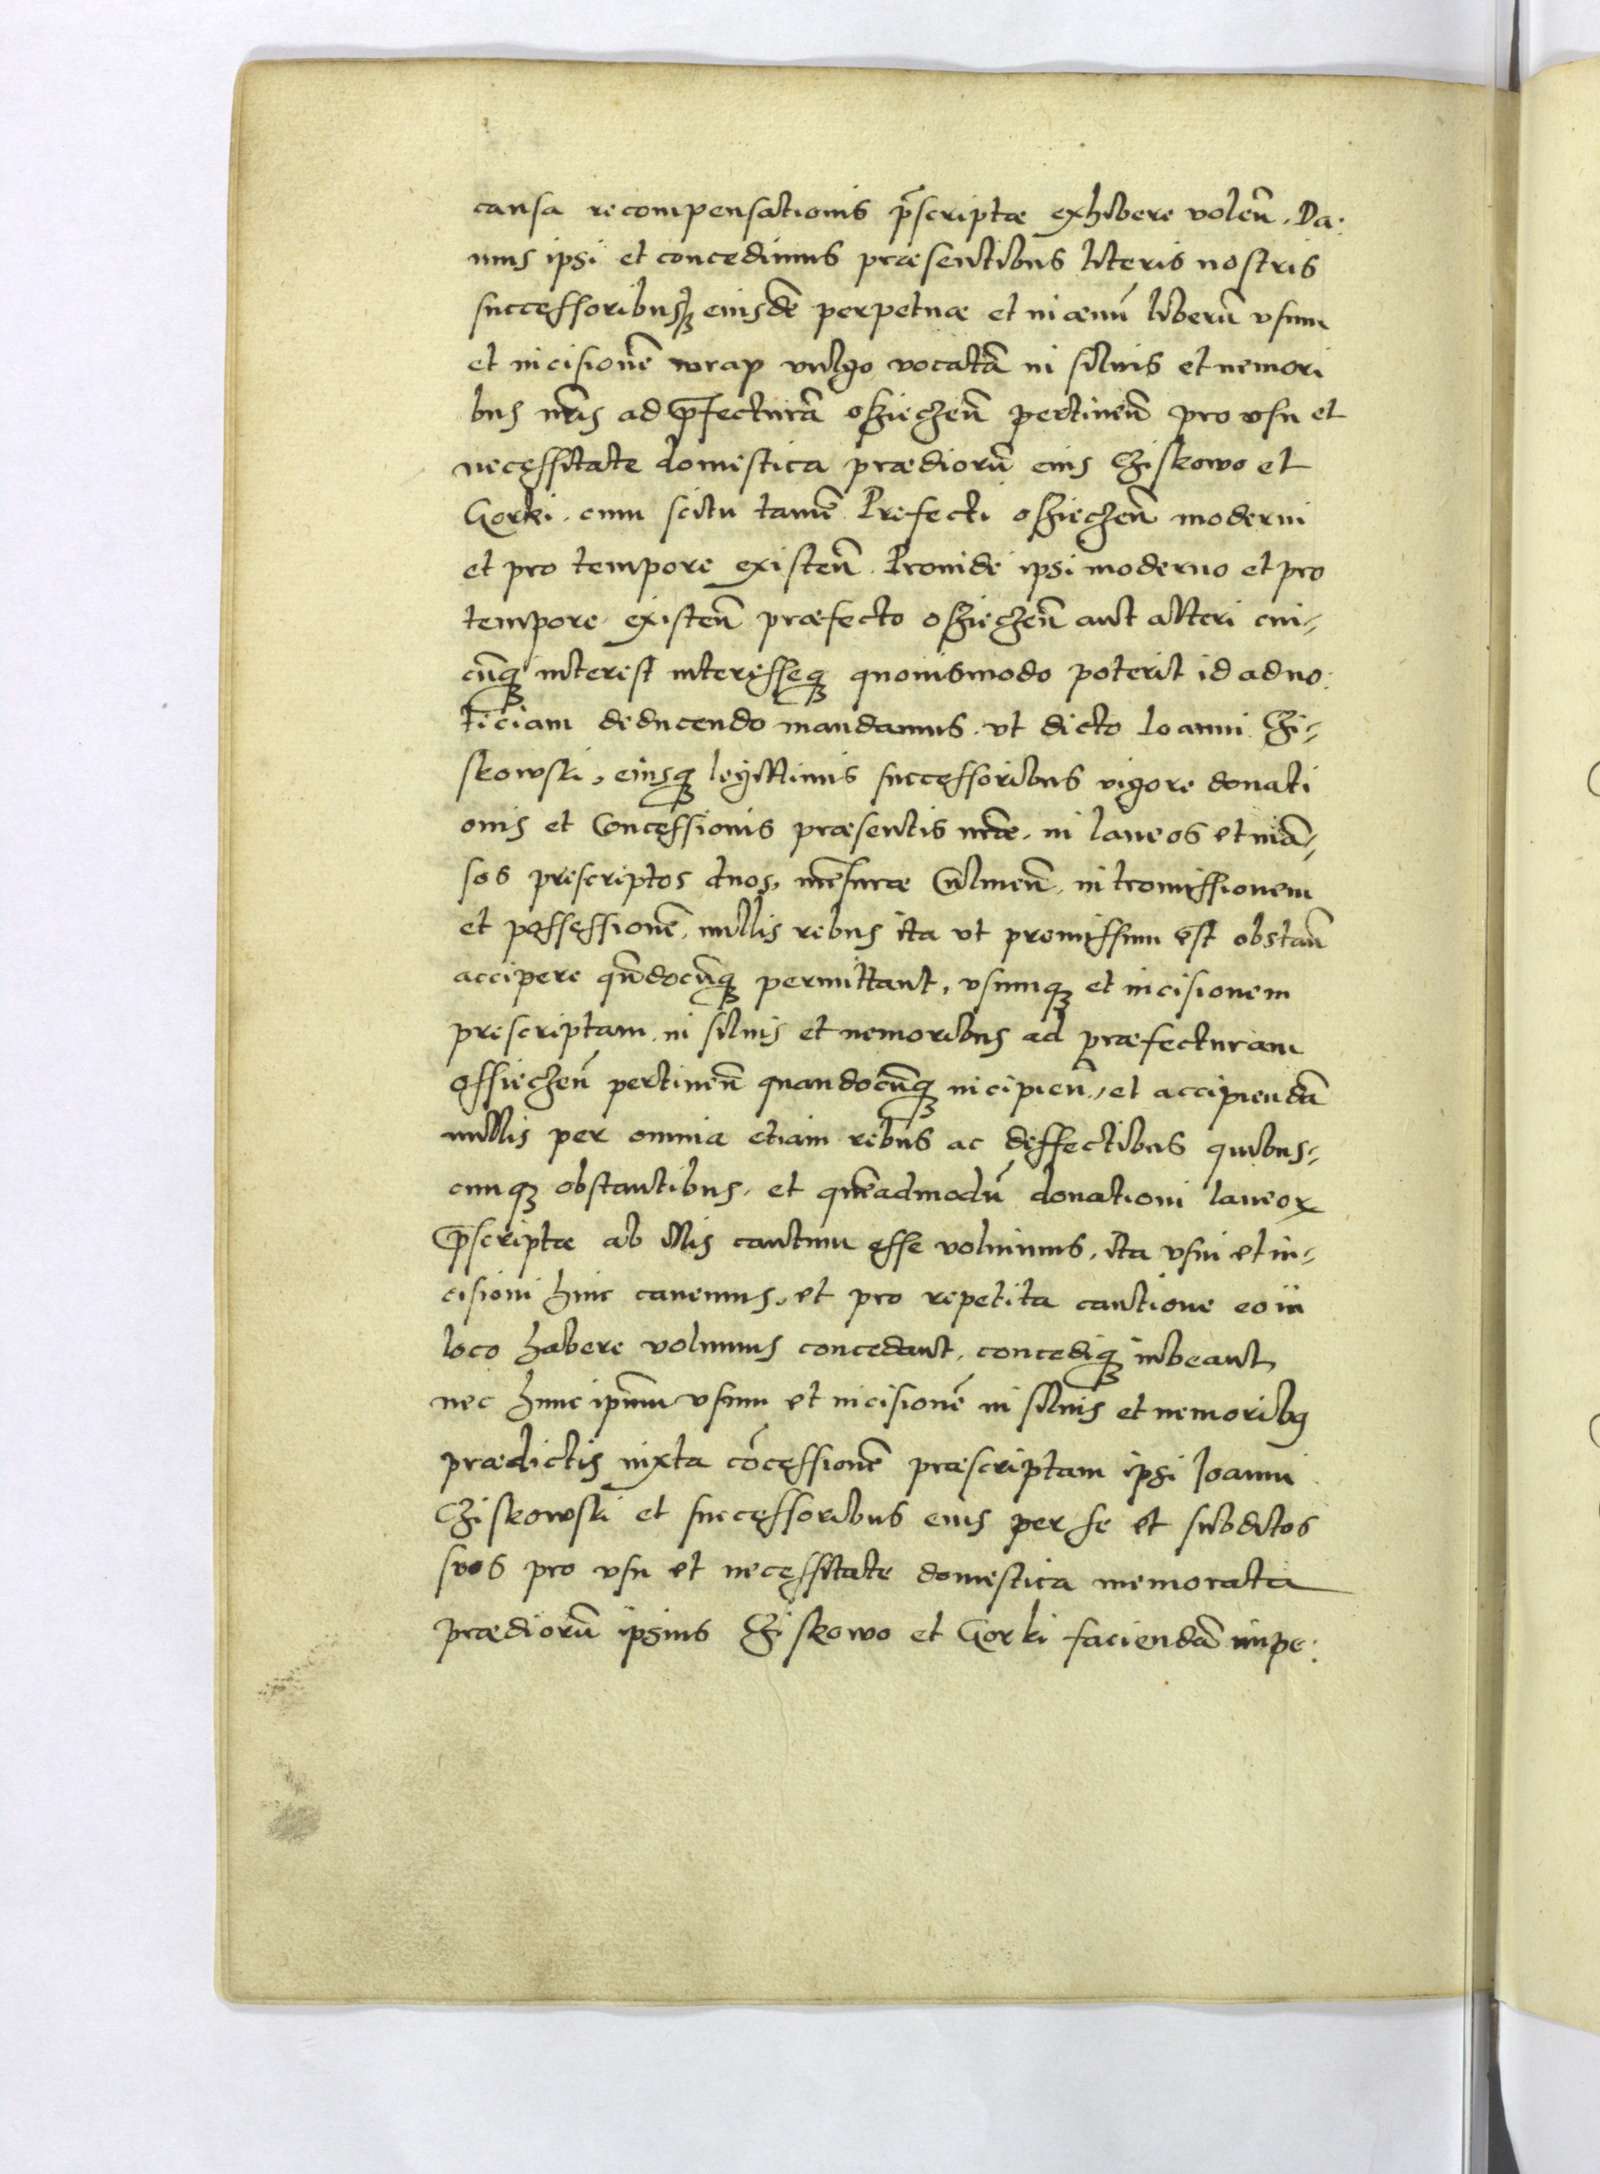 causa recompensationis p̄scriptæ exhibere voleñ. Da:
mus ipsi et concedimus præsentibus literis nostris
successoribusq̧ eiusdē perpetuæ et in æuū liberū vsum
et incisionē wrap vulgo vocatā in siluis et nemori
bus nr̄is ad p̄fecturā osziecȝeñ pertineñ pro vsu et
necessitate domestica prædiorū eius Cziskowo et
Gorki. cum scitu tamē Prefecti osziecȝeñ moderni
et pro tempore existeñ. Proinde ipsi moderno et pro
tempore existeñ præfecto osziecȝeñ aut alteri cui-
cūqȝ interest interesseqȝ quouismodo poterit id ad no:
ticiam deducendo mandamus. vt dicto Ioanni Czi-
skowski, eiusqȝ legittimis successoribus vigore donati
onis et Concessionis præsentis nr̄æ. in laneos et mā-
sos prescriptos duos, mēsuræ Culmeñ. intromissionem
et possessionē. nullis rebus ita vt premissum est obstañ
accipere qn̄docūqȝ permittant, vsumqȝ et incisionem
prescriptam. in siluis et nemoribus ad præfecturam
ossiecȝeñ pertineñ quandocūqȝ incipieñ, et accipiendā
nullis per omnia etiam rebus ac deffectibus quibus-
cunqȝ obstantibus. et quēadmodū donationi laneoꝝ
p̄scriptæ ab illis cautum esse voluimus, ita vsui et in-
cisioni hinc cauemus. et pro repetita cautione eo in
loco habere volumus concedant. concediqȝ iubeant,
nec hunc ipsum vsum et incisionē in siluis et nemoribꝫ
prædictis iuxta cōcessionē præscriptam ipsi Ioanni
Cziskowski et successoribus eius per se et subditos
suos pro vsu et necessitate domestica memorata
prædiorū ipsius Cziskowo et Gorki faciendā impe: